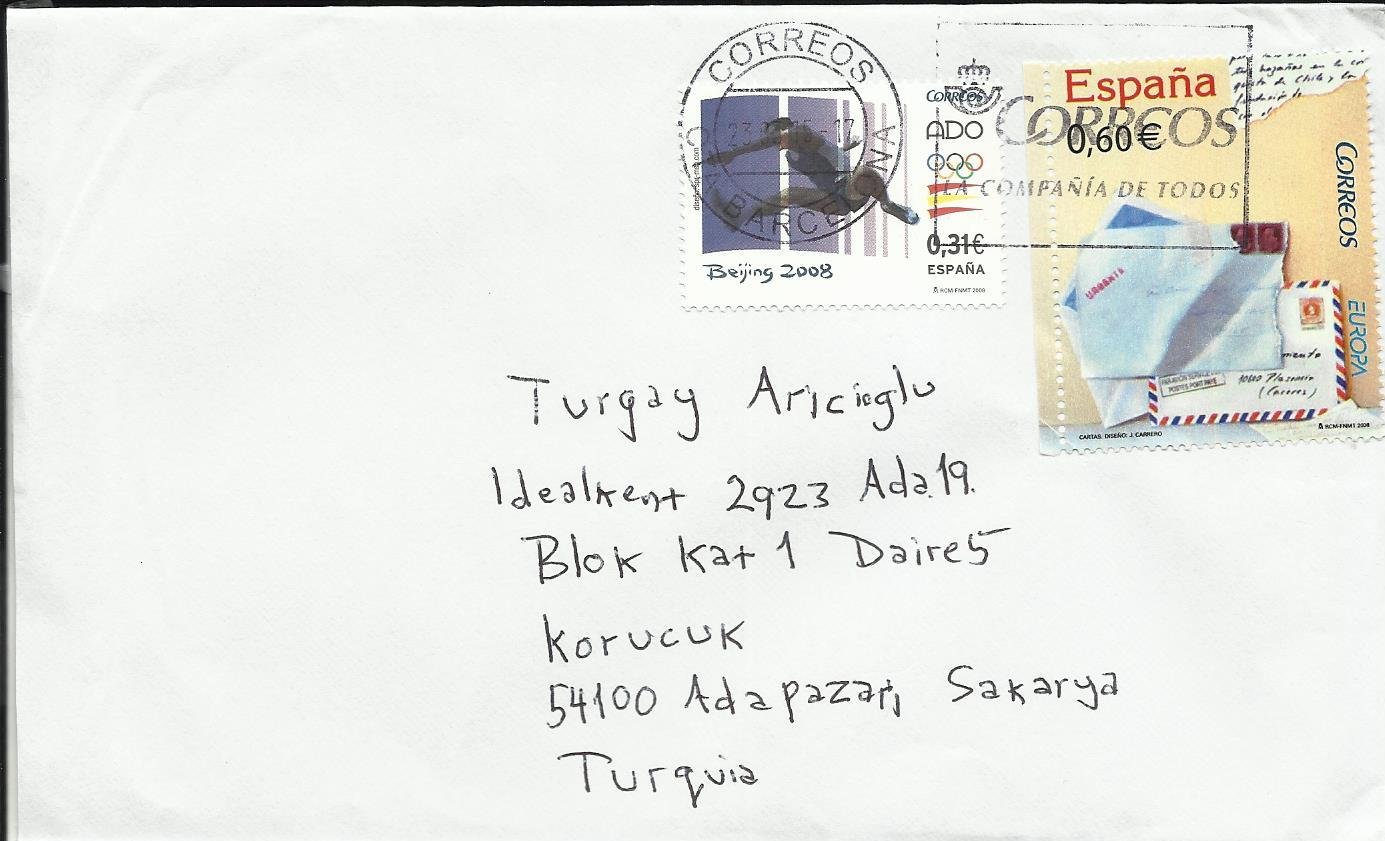 CORREOS
BARCELONA
CORREOS
LA COMPAÑÍA DE TODOS
CORREOS
ADO
0,31€
ESPAÑA
RCM-FNMT 2008
Beijing 2008
España
0,60€
CORREOS
EUROPA
URGENTE
10600 Plasencia
(Cáceres)
CARTAS. DISEÑO: J. CARRERO
RCM-FNMT 2008
Turgay Aricioglu
Idealkent 2923 Ada.19.
Blok Kat 1 Daire5
Korucuk
54100 Adapazari, Sakarya
Turquia